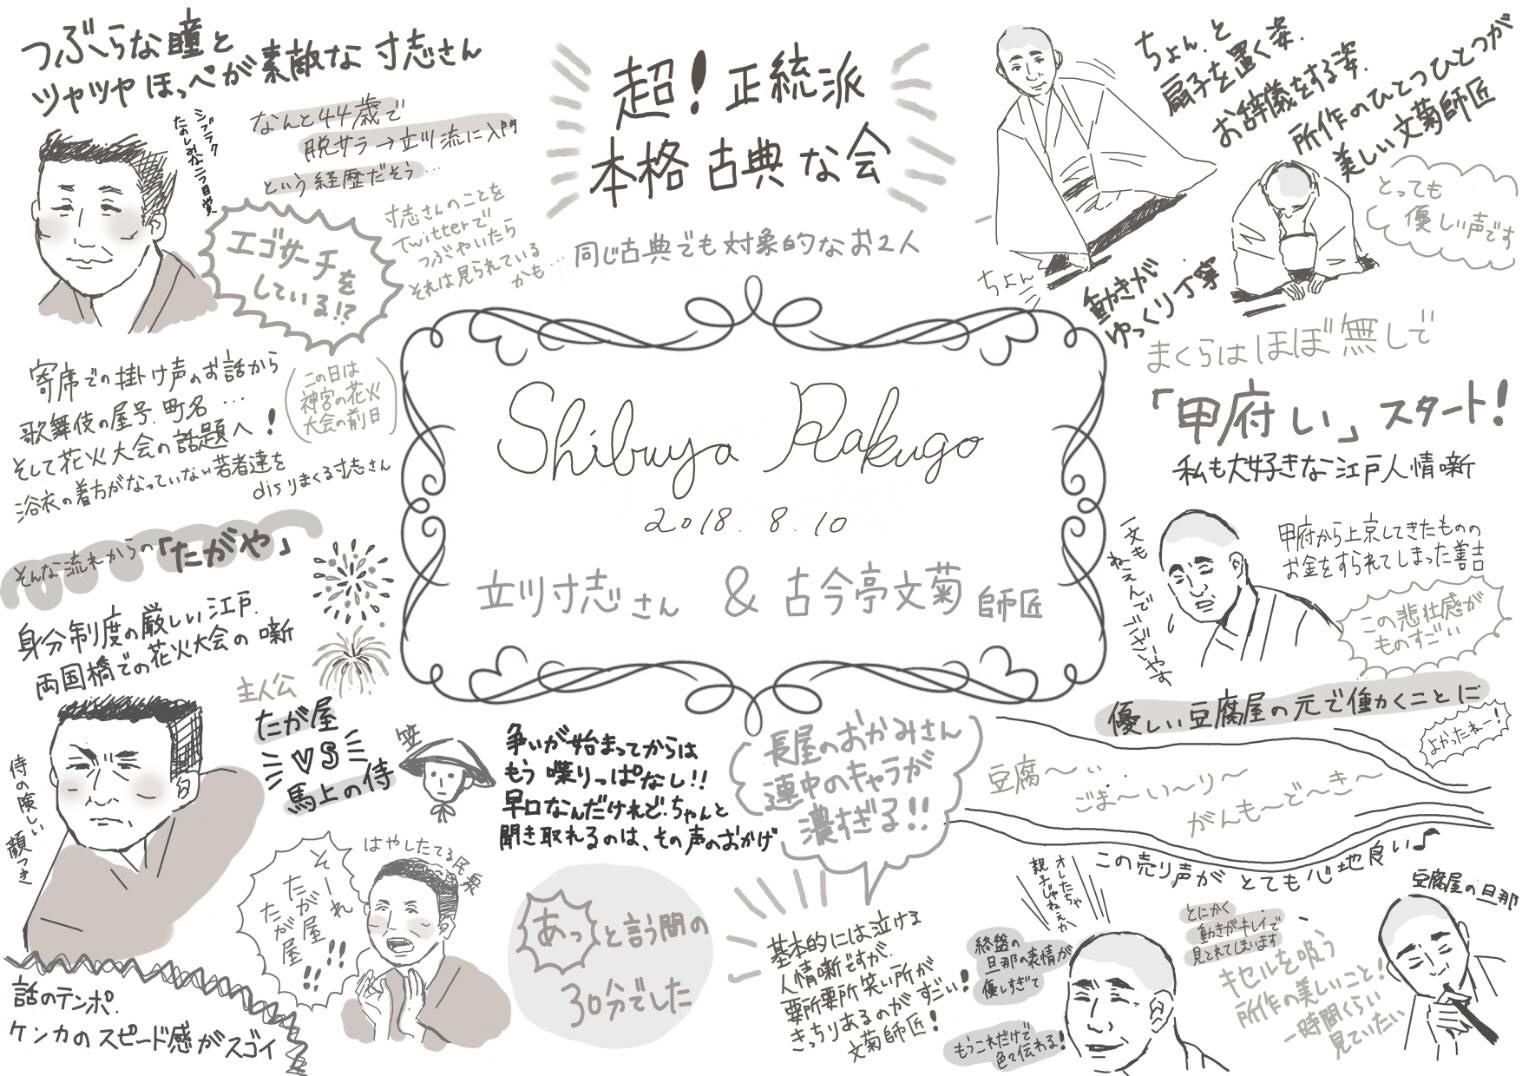 つぶらな瞳と
ツヤツヤほっぺが素敵な寸志さん
シブラク
たのしみな二つ目賞
なんと44歳で
脱サラ→立川流に入門
という経歴だそう…
エゴサーチを
している!?
寸志さんのことを
Twitterで
つぶやいたら
それは見られている
かも…
寄席での掛け声のお話から
歌舞伎の屋号、町名…
そして花火大会の話題へ!
浴衣の着方がなっていない若者達を
disりまくる寸志さん
(この日は
神宮の花火
大会の前日)
そんな流れからの「たがや」
身分制度の厳しい江戸、
両国橋での花火大会の噺
主人公
たが屋
VS
馬上の侍
笠
侍の険しい
顔つき
はやしたてる民衆
そーれ
たが屋
たが屋
!!!!
話のテンポ、
ケンカのスピード感がスゴイ
争いが始まってからは
もう喋りっぱなし!!
早口なんだけれど、ちゃんと
聞き取れるのは、その声のおかげ
あっと言う間の
30分でした
超!正統派
本格古典な会
同じ古典でも対象的なお2人
Shibuya Rakugo
2018.8.10
立川寸志さん & 古今亭文菊師匠
ちょん、と
扇子を置く姿、
お辞儀をする姿、
所作のひとつひとつが
美しい文菊師匠
ちょん
動きが
ゆっくり丁寧
とっても
優しい声です
まくらはほぼ無しで
「甲府い」スタート!
私も大好きな江戸人情噺
一文も
ねえんで
ございやす
甲府から上京してきたものの
お金をすられてしまった善吉
この悲壮感が
ものすごい
優しい豆腐屋の元で働かくことに
よかったねー!
豆腐〜ぃ、
ごま〜い〜り〜
がんも〜ど〜き〜
この売り声がとても心地良い♪
長屋のおかみさん
連中のキャラが
濃すぎる!!
基本的には泣ける
人情噺ですが、
要所要所笑い所が
きっちりあるのがすごい!
文菊師匠!
オレたちゃ
親子じゃねぇか
終盤の
旦那の表情が
優しすぎて
もうこれだけで
色々伝わる!
豆腐屋の旦那
とにかく
動きがキレイで
見とれてしまいます
キセルを吸う
所作の美しいこと!
一時間くらい
見ていたい